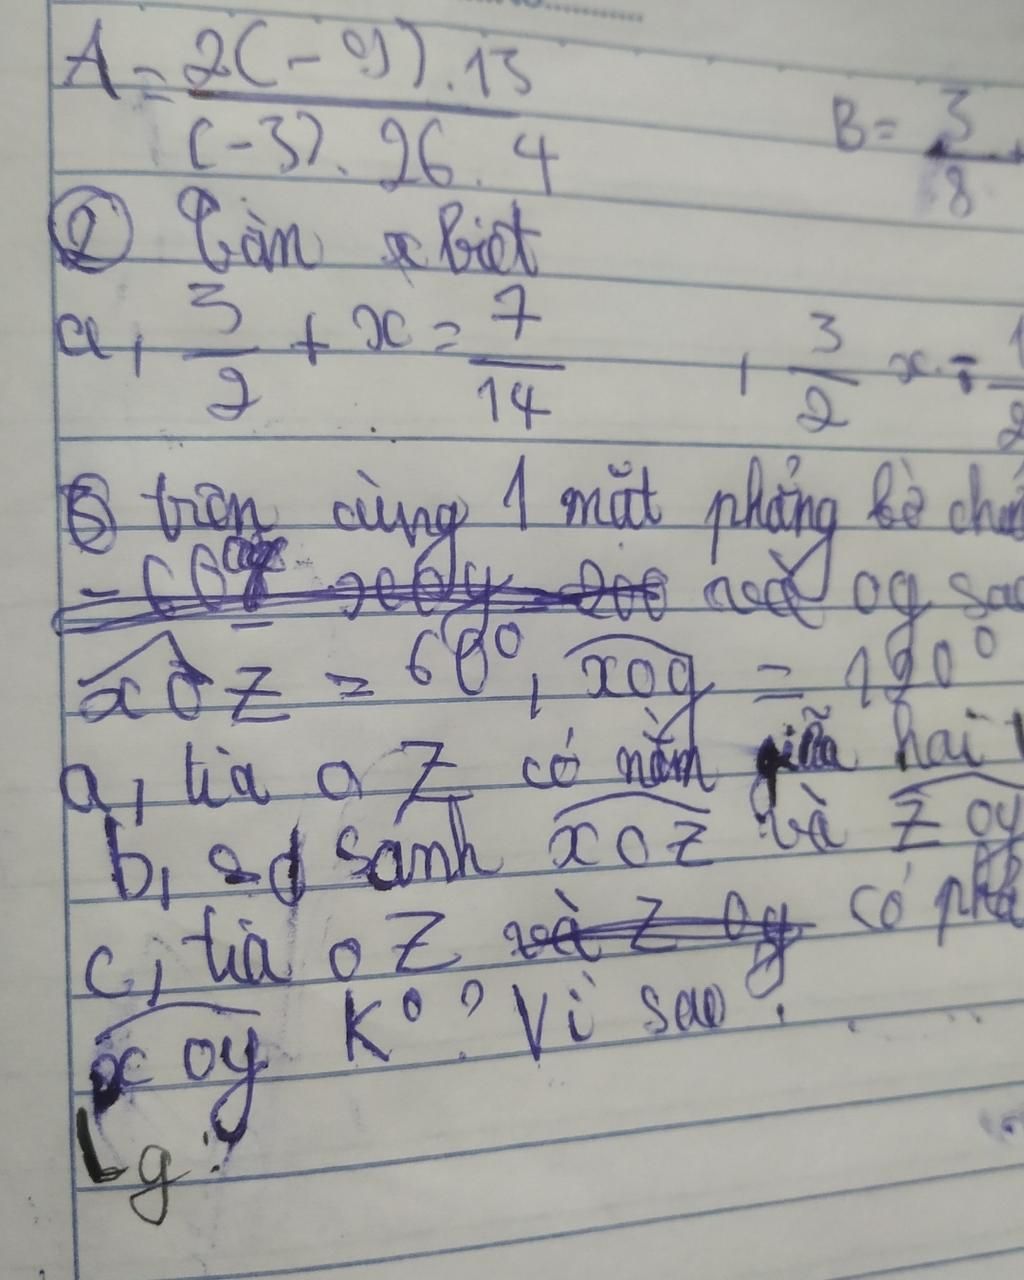 A = 2(-9).13 / (-3).26.4 B = 3/8
② Tìm x biết
a, 3/2 + x = 7/14 , 3/2 x
③ trên cùng 1 mặt phẳng bờ
và oy
xOz = 60°, xoy = 120°
a, tia oZ có nằm giữa hai
b, so sánh xoz và Zoy
c, tia oZ có
xoy K°? Vì sao?
Lg: